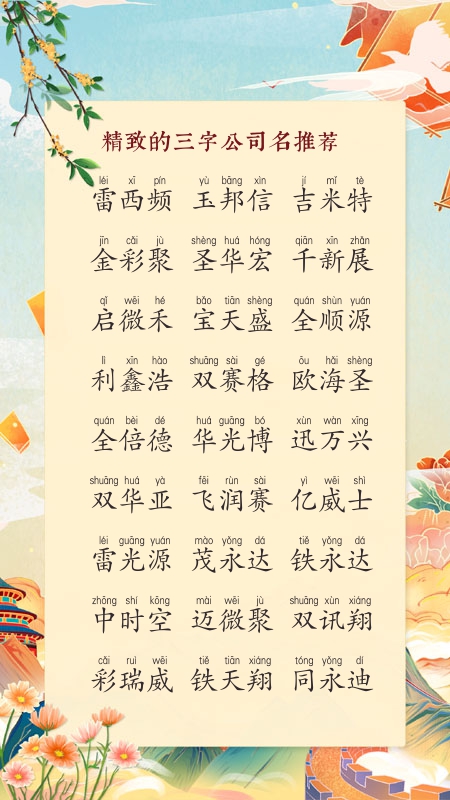 精致的三字公司名推荐
léi xī pín yù bāng xìn jí mǐ tè
雷西频 玉邦信 吉米特
jīn cǎi jù shèng huá hóng qiān xīn zhǎn
金彩聚 圣华宏 千新展
qǐ wēi hé bǎo tiān shèng quán shùn yuán
启微禾 宝天盛 全顺源
lì xīn hào shuāng sài gé ōu hǎi shèng
利鑫浩 双赛格 欧海圣
quán bèi dé huá guāng bó xùn wàn xīng
全倍德 华光博 迅万兴
shuāng huá yà fēi rùn sài yì wēi shì
双华亚 飞润赛 亿威士
léi guāng yuán mào yǒng dá tiě yǒng dá
雷光源 茂永达 铁永达
zhōng shí kōng mài wēi jù shuāng xùn xiáng
中时空 迈微聚 双讯翔
cǎi ruì wēi tiě tiān xiáng tóng yǒng dí
彩瑞威 铁天翔 同永迪